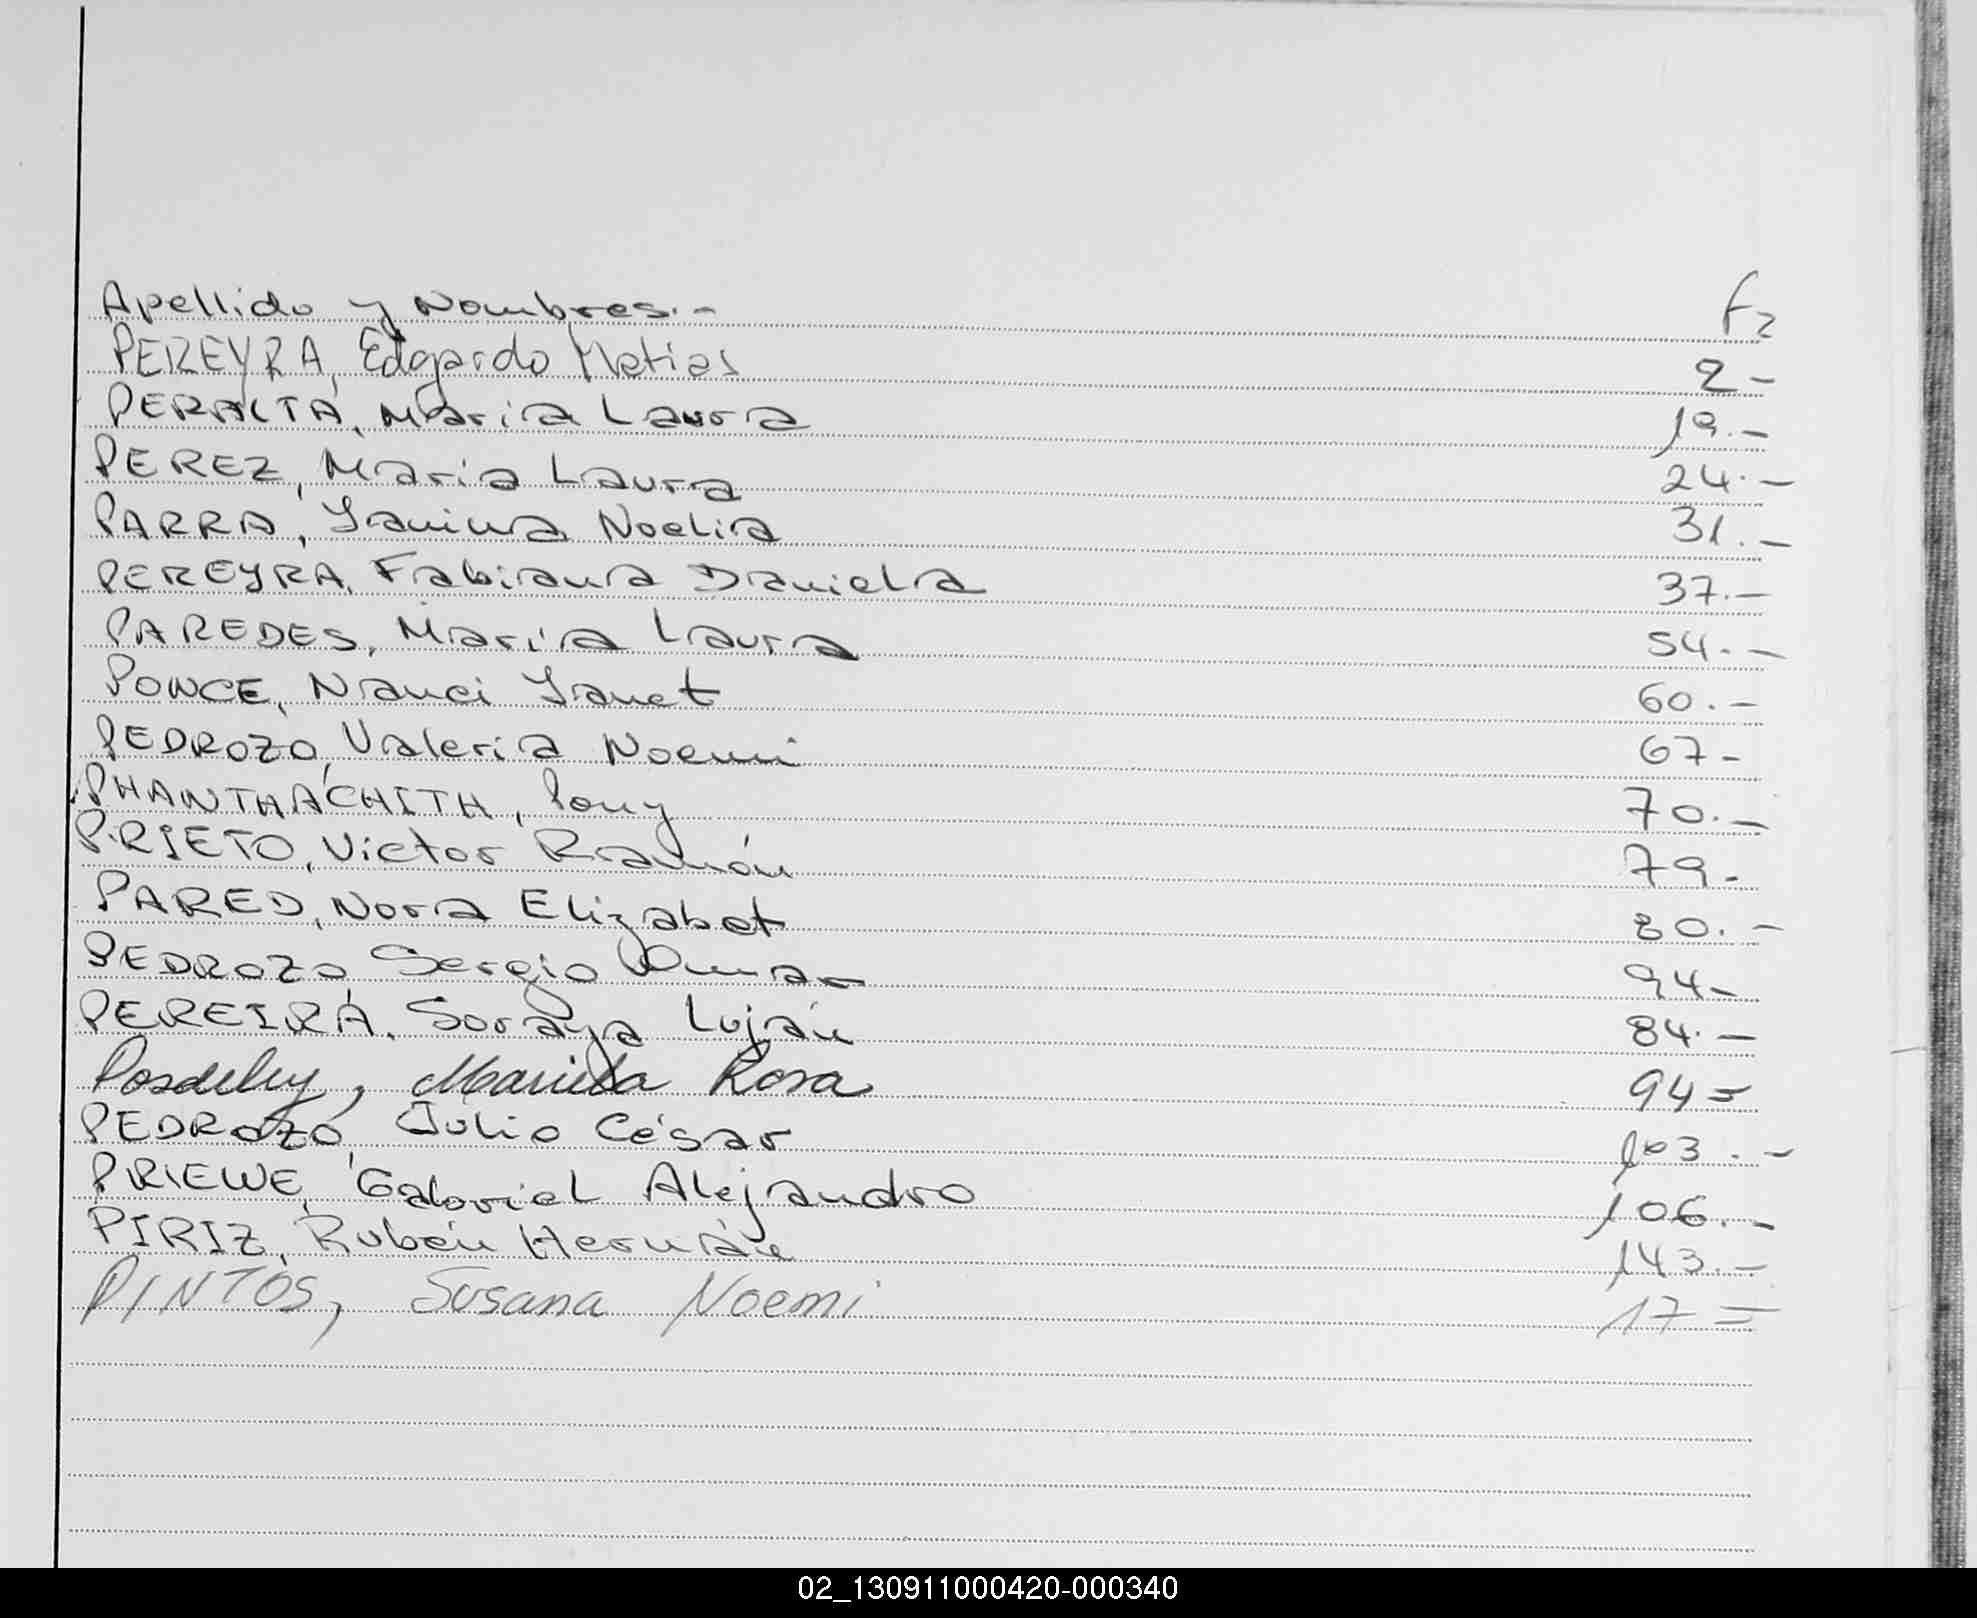 Apellido y Nombres.- Fº
PEREYRA, Edgardo Matias 2-
PERALTA, Maria Laura 19.-
PEREZ, Maria Laura 24.-
PARRA, Yanina Noelia 31.-
PEREYRA, Fabiana Daniela 37.-
PAREDES, María Laura 54.-
PONCE, Nanci Yanet 60.-
PEDROZO, Valeria Noemi 67-
PHANTHACHITH, Pony 70.-
PRIETO, Victor Ramón 79.
PARED, Nora Elizabet 80.-
PEDROZO, Sergio Omar 94-
PEREIRA, Soraya Luján 84.-
Mariela Rosa 94=
PEDROZO, Julio César 103.-
PRIEWE, Gabriel Alejandro 106.-
PIRIZ, Rubén Hernán 143.-
PINTOS, Susana Noemi 17=
02_130911000420-000340